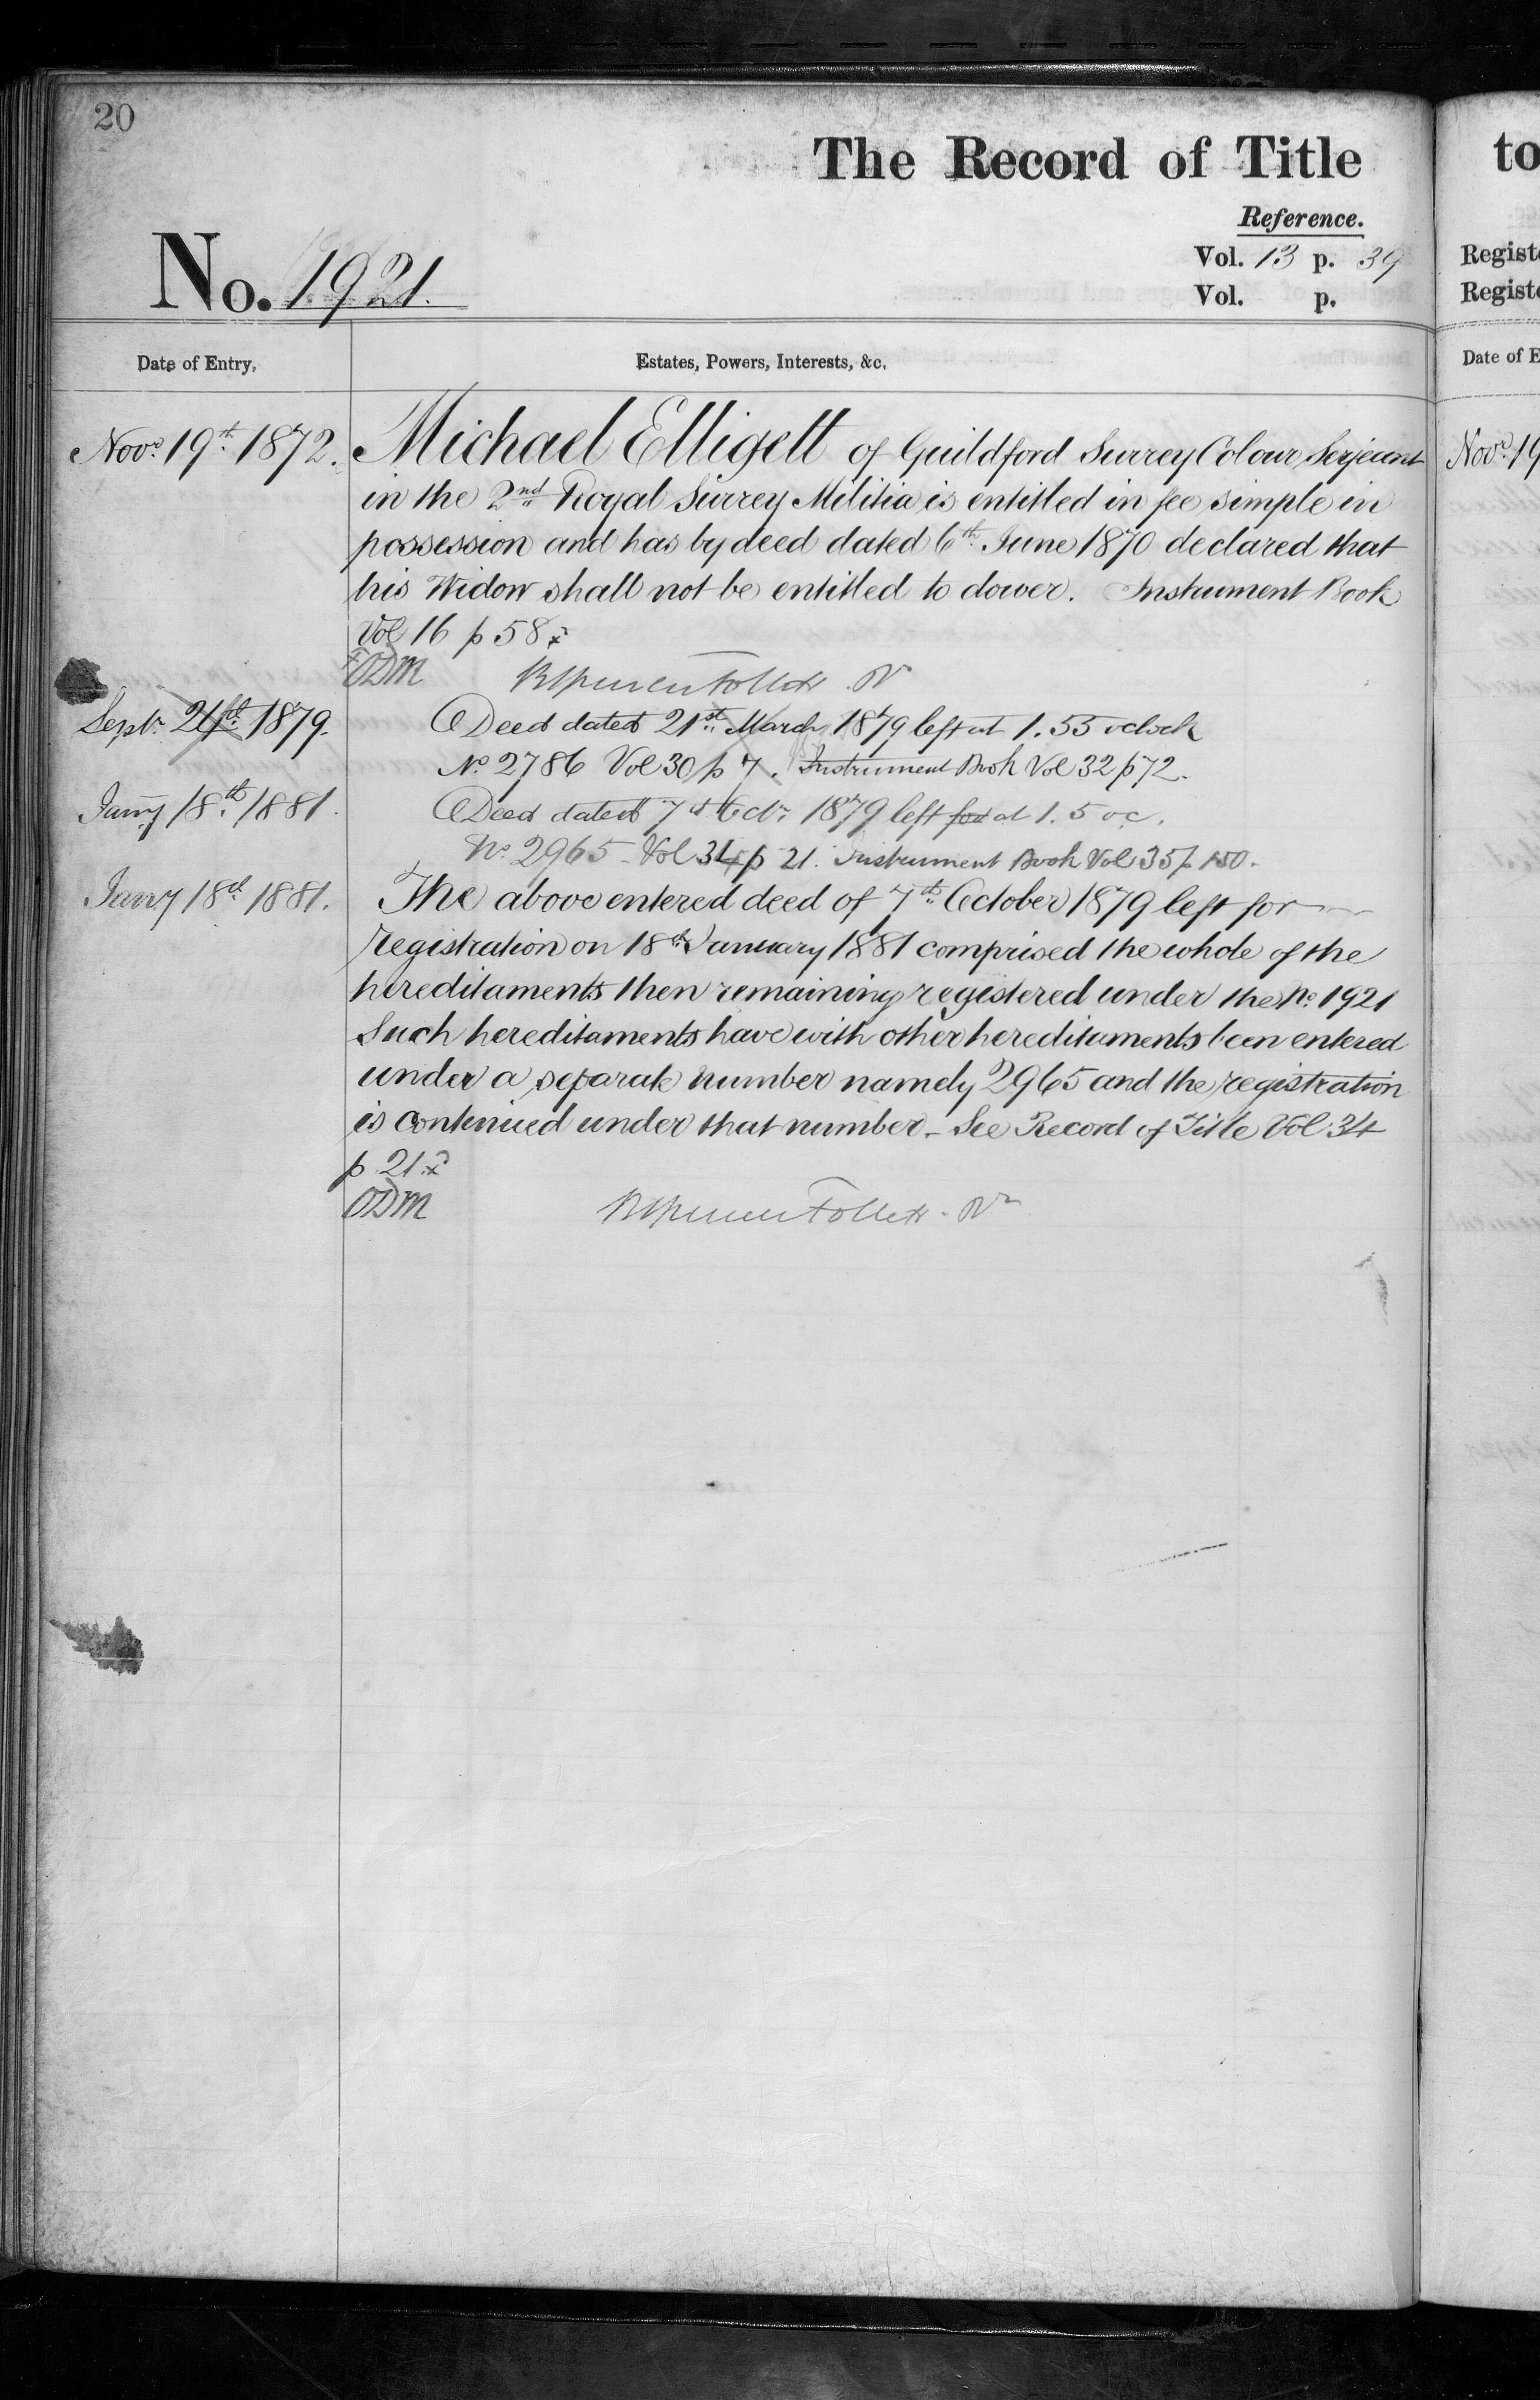 20
The Record of Title
Reference.
No. 1921.
Vol. 13 p. 39
Vol. p.
Date of Entry,
Estates, Powers, Interests, &c.
Novr. 19th. 1872.
Michael Elligett of Guildford Surrey Colour Serjeant
in the 2nd Royal Surrey Militia is entitled in fee simple in
possession and has by deed dated 6th June 1870 declared that
his Widow shall not be entitled to dower. Instrument Book
Vol 16 p 58
ODM
Follett Rr
Septr 1879.
Deed dated 21st March 1879 left at 1.55 oclock
No 2786 Vol 30 p 7. Instrument Book Vol 32 p 72.
Jany 18th. 1881.
Deed dated 7th Octr 1879 left for at 1.5 oc.
No 2965 - Vol 34 p 21. Instrument Book Vol 35 p 150.
Jany 18th 1881.
The above entered deed of 7th October 1879 left for
registration on 18th January 1881 comprised the whole of the
hereditaments then remaining registered under the No 1921
Such hereditaments have with other hereditaments been entered
under a separate number namely 2965 and the registration
is continued under that number - See Record of Title Vol 34
p 21
ODM
Follett - Rr
to
Regist
Regist
Date of E
Novr 19